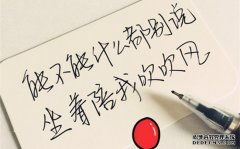 能不能什么都别说
坐着陪我吹吹风